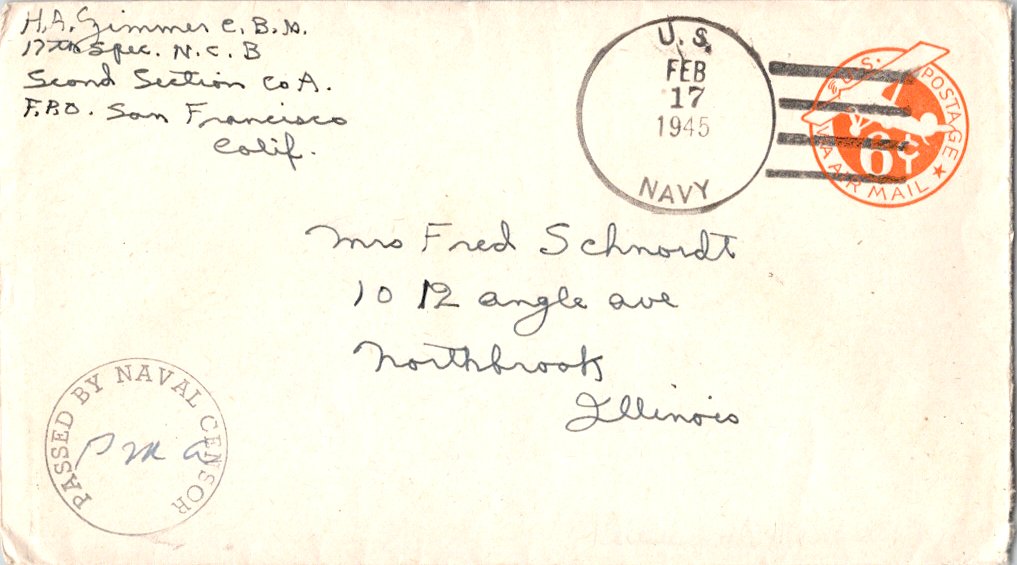 H.A. Zimmer C.B.M.
17th Spec. N.C.B
Scond Section Co A.
F.P.O. San Francisco
Calif.
U.S.
FEB
17
1945
NAVY
U.S. POSTAGE
6¢
VIA AIR MAIL
Mrs Fred Schnordt
10 12 angle ave
Northbrook
Illinois
PASSED BY NAVAL CENSOR
P M a